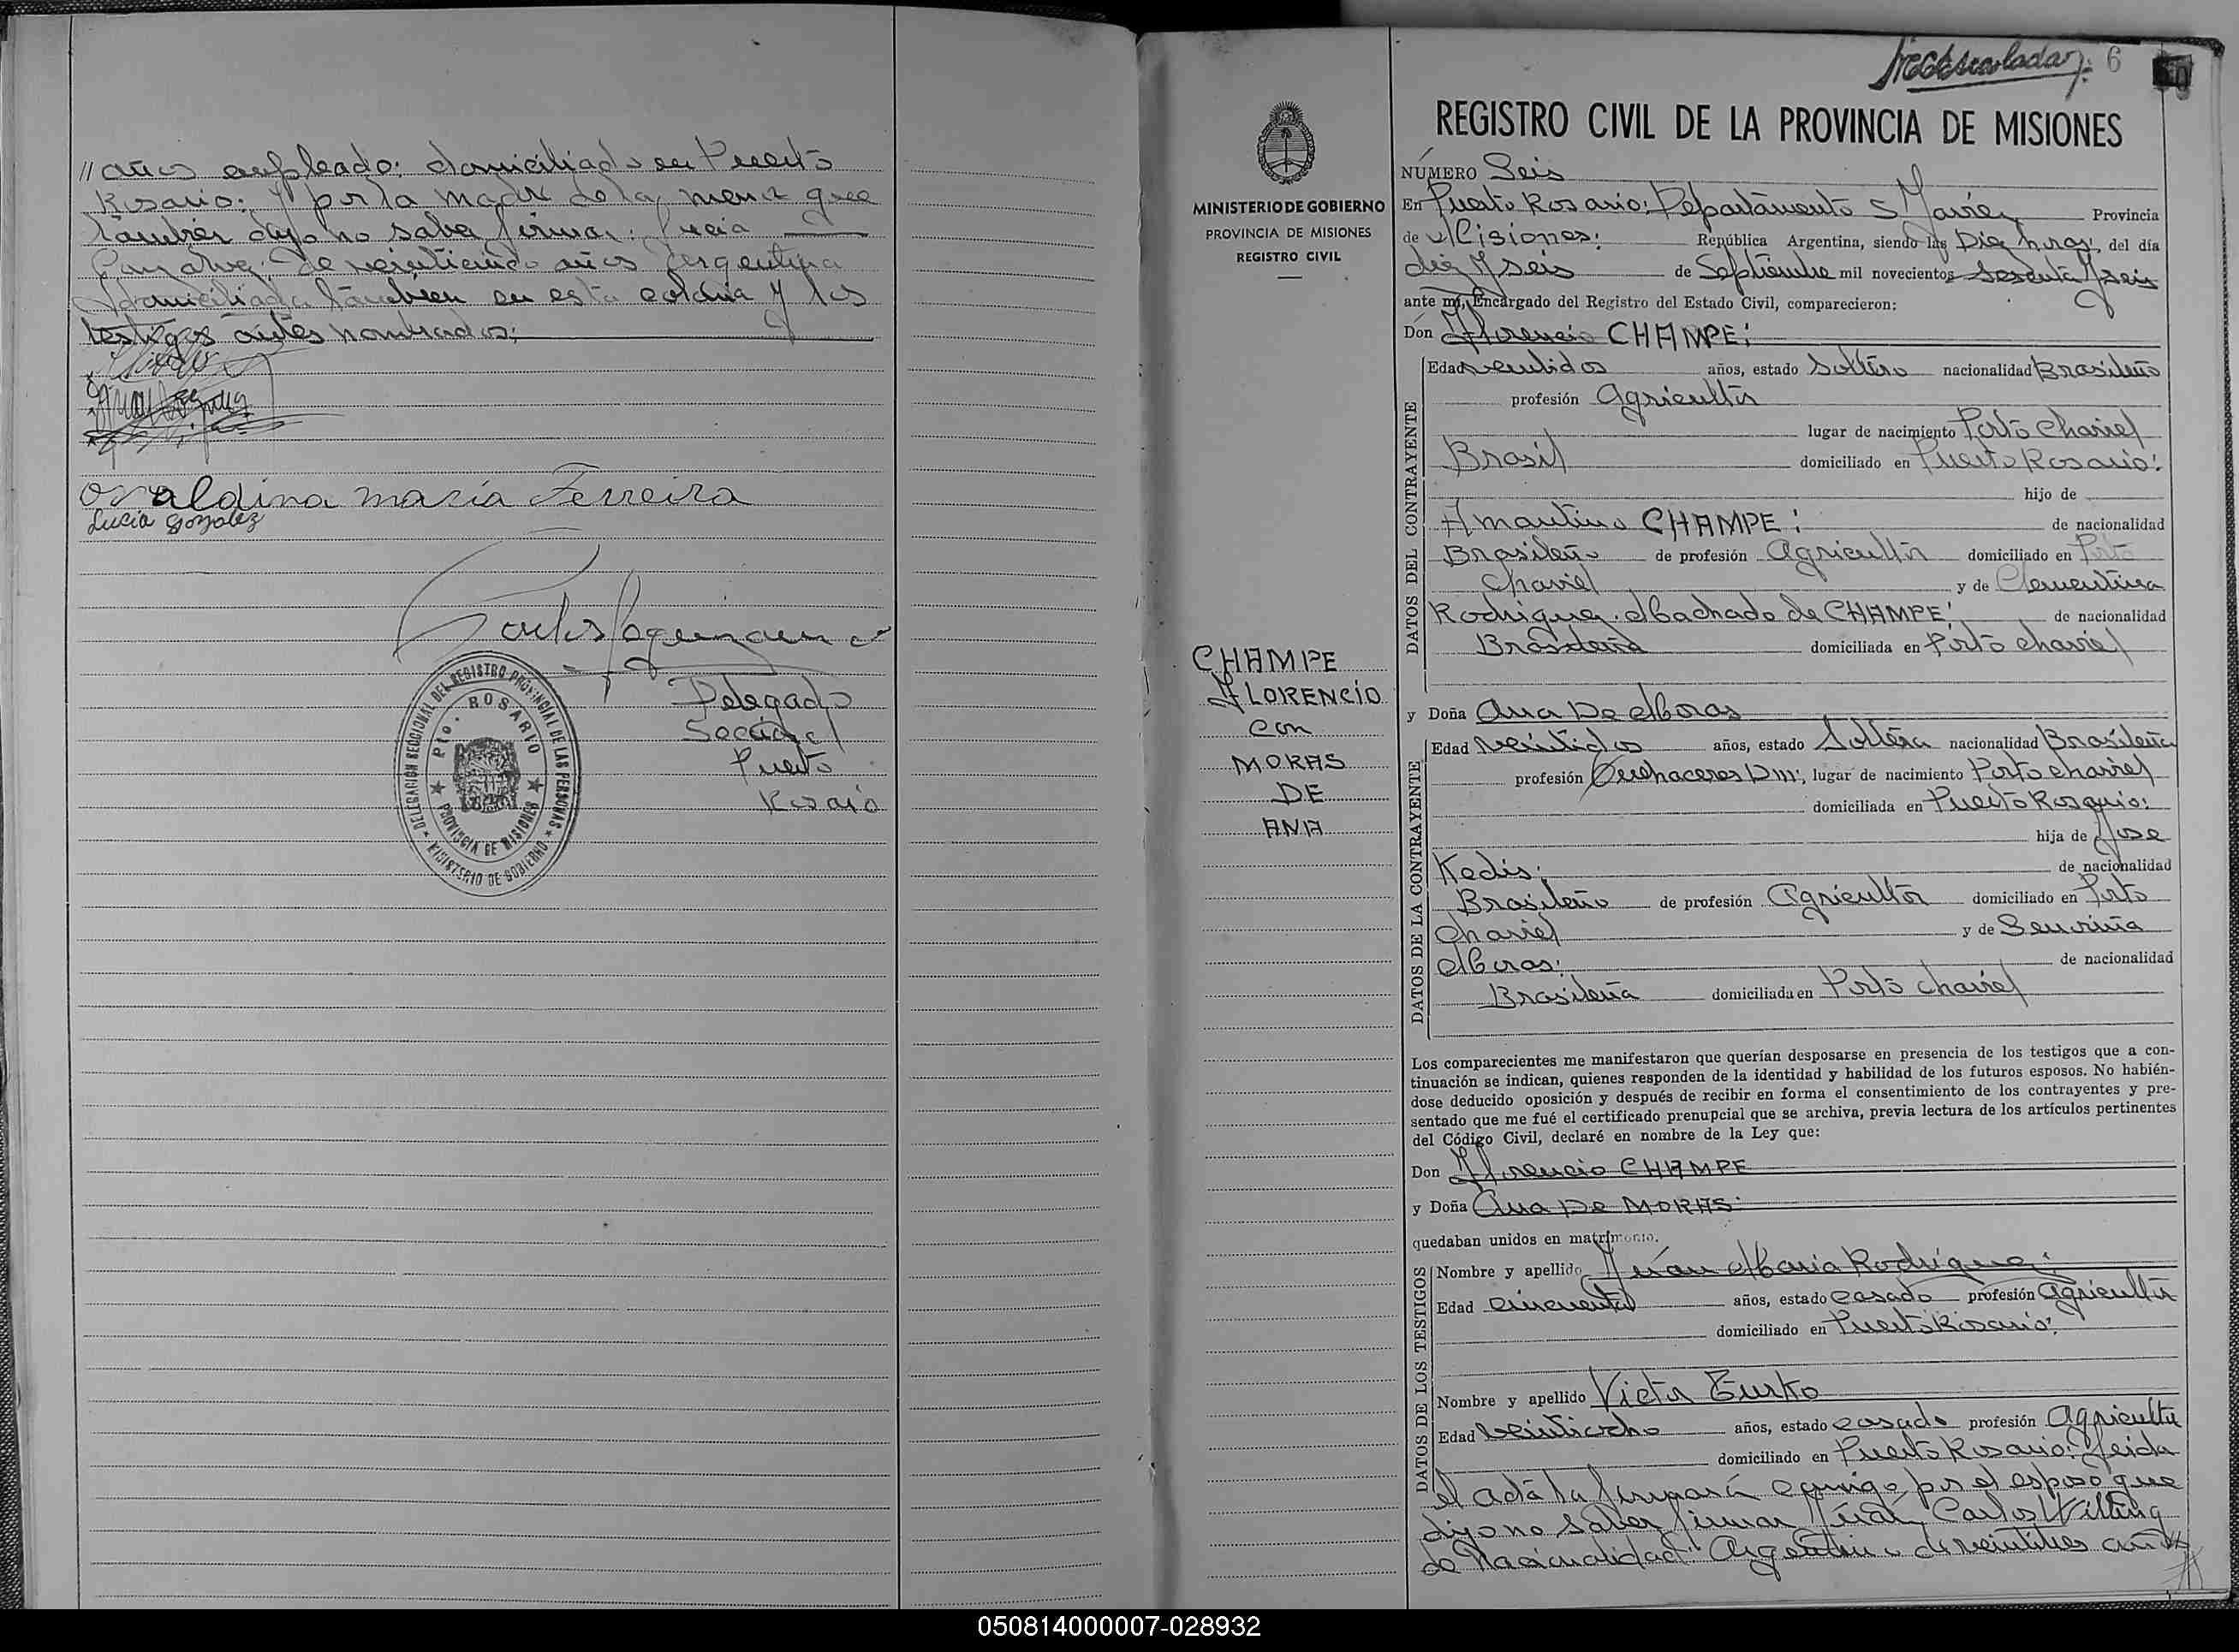 // años empleado: domiciliado en Puerto
Rosario: Y por la madre de la menor que
tambien dijo no saber firmar: Lucia
de veinticinco años Argentina
domiciliada tambien en esta colonia y los
testigos antes nombrados:
Osvaldina maria Ferreira
Lucia gonzalez
Delegado
Seccional
Puerto
Rosario
DELEGACION SECCIONAL DEL REGISTRO PROVINCIAL DE LAS PERSONAS
MINISTERIO DE GOBIERNO
Pto. ROSARIO
PROVINCIA DE MISIONES
6
REGISTRO CIVIL DE LA PROVINCIA DE MISIONES
MINISTERIO DE GOBIERNO
PROVINCIA DE MISIONES
REGISTRO CIVIL
CHAMPE
FLORENCIO
con
MORAS
DE
ANA
NÚMERO Seis
En Puerto Rosario: Departamento S Javier Provincia
de Misiones: República Argentina, siendo las Diez horas, del día
diez y seis de Septiembre mil novecientos sesenta y seis
ante mí, Encargado del Registro del Estado Civil, comparecieron:
Don Florencio CHAMPE:
DATOS DEL CONTRAYENTE
Edad ventidos años, estado Soltero nacionalidad Brasileño
profesión Agricultor
lugar de nacimiento Porto Chaviel
Brasil domiciliado en Puerto Rosario:
hijo de
Amantino CHAMPE: de nacionalidad
Brasileño de profesión Agricultor domiciliado en Porto
Chaviel y de Clementina
Rodriguez Machado de CHAMPE: de nacionalidad
Brasileña domiciliada en Porto chaviel
y Doña Ana De Moras
DATOS DE LA CONTRAYENTE
Edad veintidos años, estado Soltera nacionalidad Brasileña
profesión Quehaceres Dm:, lugar de nacimiento Porto chaviel
domiciliada en Puerto Rosario:
hija de Jose
Kedis: de nacionalidad
Brasileño de profesión Agricultor domiciliado en Porto
Chaviel y de
Moras: de nacionalidad
Brasileña domiciliada en Porto chaviel
Los comparecientes me manifestaron que querían desposarse en presencia de los testigos que a con-
tinuación se indican, quienes responden de la identidad y habilidad de los futuros esposos. No habién-
dose deducido oposición y después de recibir en forma el consentimiento de los contrayentes y pre-
sentado que me fué el certificado prenupcial que se archiva, previa lectura de los artículos pertinentes
del Código Civil, declaré en nombre de la Ley que:
Don Florencio CHAMPE
y Doña Ana De MORAS:
quedaban unidos en matrimonio.
DATOS DE LOS TESTIGOS
Nombre y apellido Juan Maria Rodriguez:
Edad cincuenta años, estado casado profesión Agricultor
domiciliado en Puerto Rosario:
Nombre y apellido Victor Eurko
Edad veintiocho años, estado casado profesión Agricultor
domiciliado en Puerto Rosario: leida
el acta la firmará conmigo por el esposo que
dijo no saber firmar Juan Carlos Villing
de Nacionalidad Argentino de veintitres años //
050814000007-028932